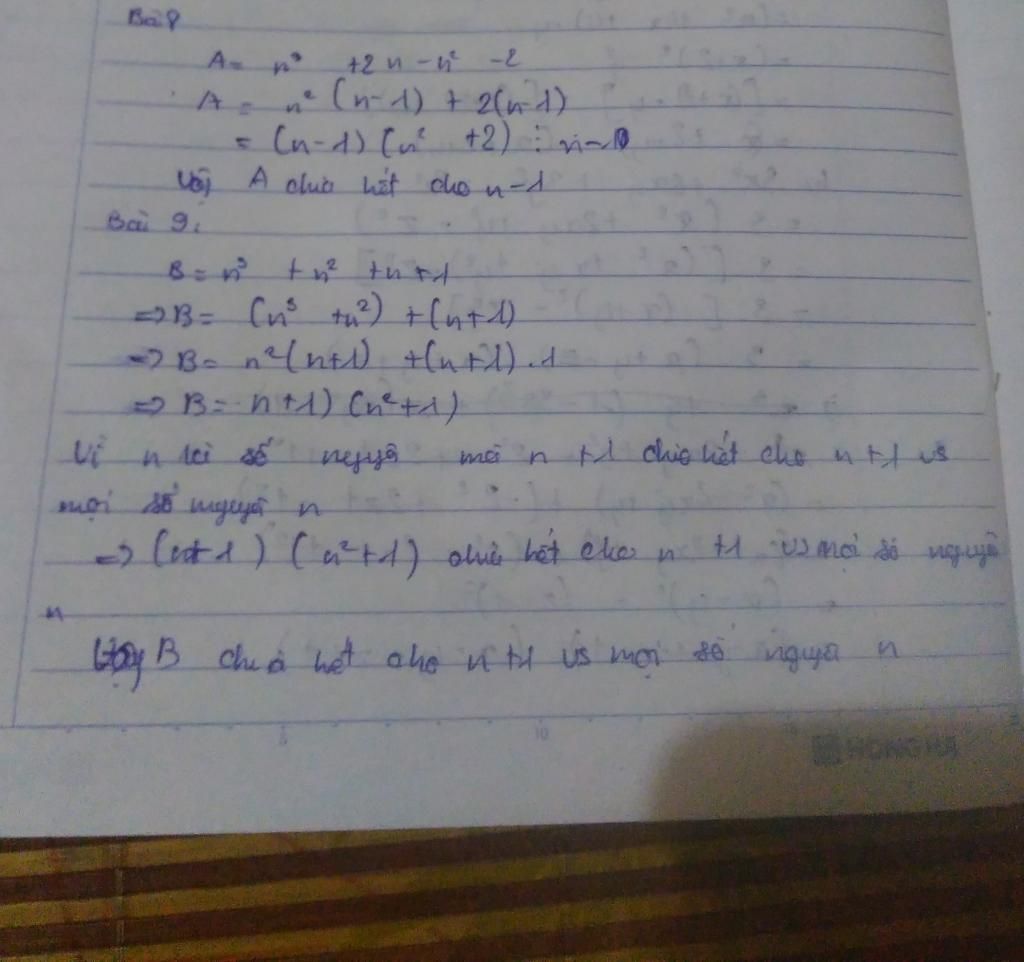 Bài 8
A = n³ + 2n - n² - 2
A = n² (n-1) + 2(n-1)
= (n-1) (n² + 2) ⋮ n-1
Vậy A chia hết cho n-1
Bài 9:
B = n³ + n² + n + 1
=> B = (n³ + n²) + (n+1)
=> B = n²(n+1) + (n+1).1
=> B = n+1) (n²+1)
Vì n là số nguyê mà n +1 chia hết cho n+1 vs
mọi số nguyê n
=> (n+1) (n²+1) chia hết cho n +1 vs mọi số nguyê
n
Vậy B chia hết cho n+1 vs mọi số nguyê n
10
HONG HA